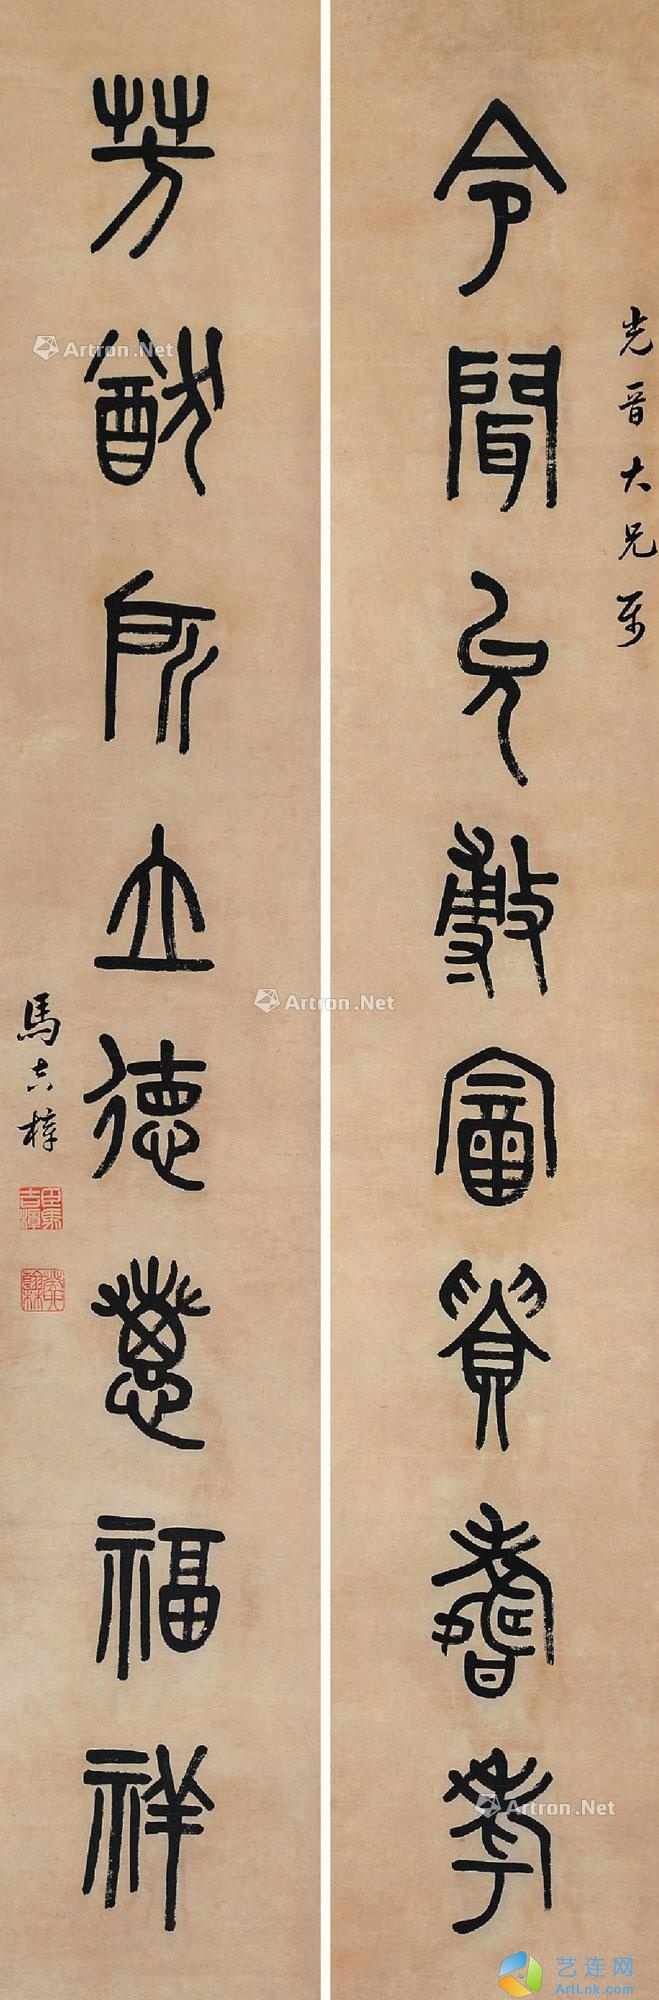 光晉大兄属
令聞允敷富貴壽考
芳猷所立德惠福祥
馬吉樟
臣馬吉樟
Artron.Net
Artron.Net
Artron.Net
艺连网
ArtLnk.com